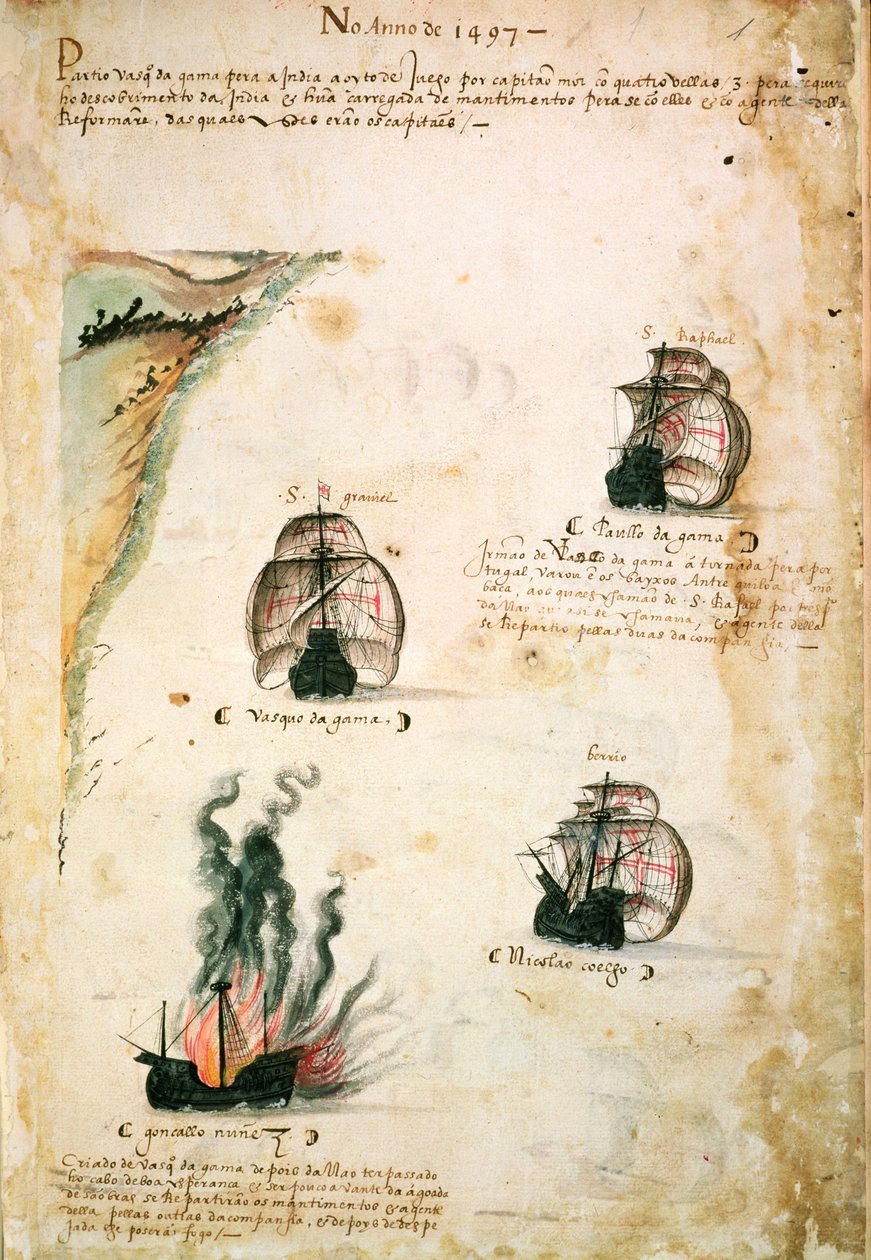 No Anno de 1497 —
1
Partio Vasqo da gama pera a India a oyto de Iuego por capitaõ mor cõ quatro vellas, 3. pera sequir
ho descobrimento da India & huã carregada de mantimentos pera se cõ elles & cõ a gente della
Reformare, das quaes vsdes erão os capitaẽs / —
S. Raphael
( Paullo da gama )
Irmão de Vasco da gama á tornada pera por
tugal, varou ẽ os bayxos Antre quiloa & mõ
baça, aos quaes chamão de S. Rafael por resp.
da Nao & agente della
se Repartio pellas duas da companhia, —
S. gravriel
( Vasquo da gama, )
berrio
( Nicolao coelho )
( goncallo nuñez. )
Criado de Vasqo da gama depois da Nao ter passado
ho cabo de boa esperanca & ser pouco avante da ágoada
de saõ bras se Repartirão os mantimentos & agente
della pellas outras da companhia, & depoys de despe
jada lhe poserão fogo / —